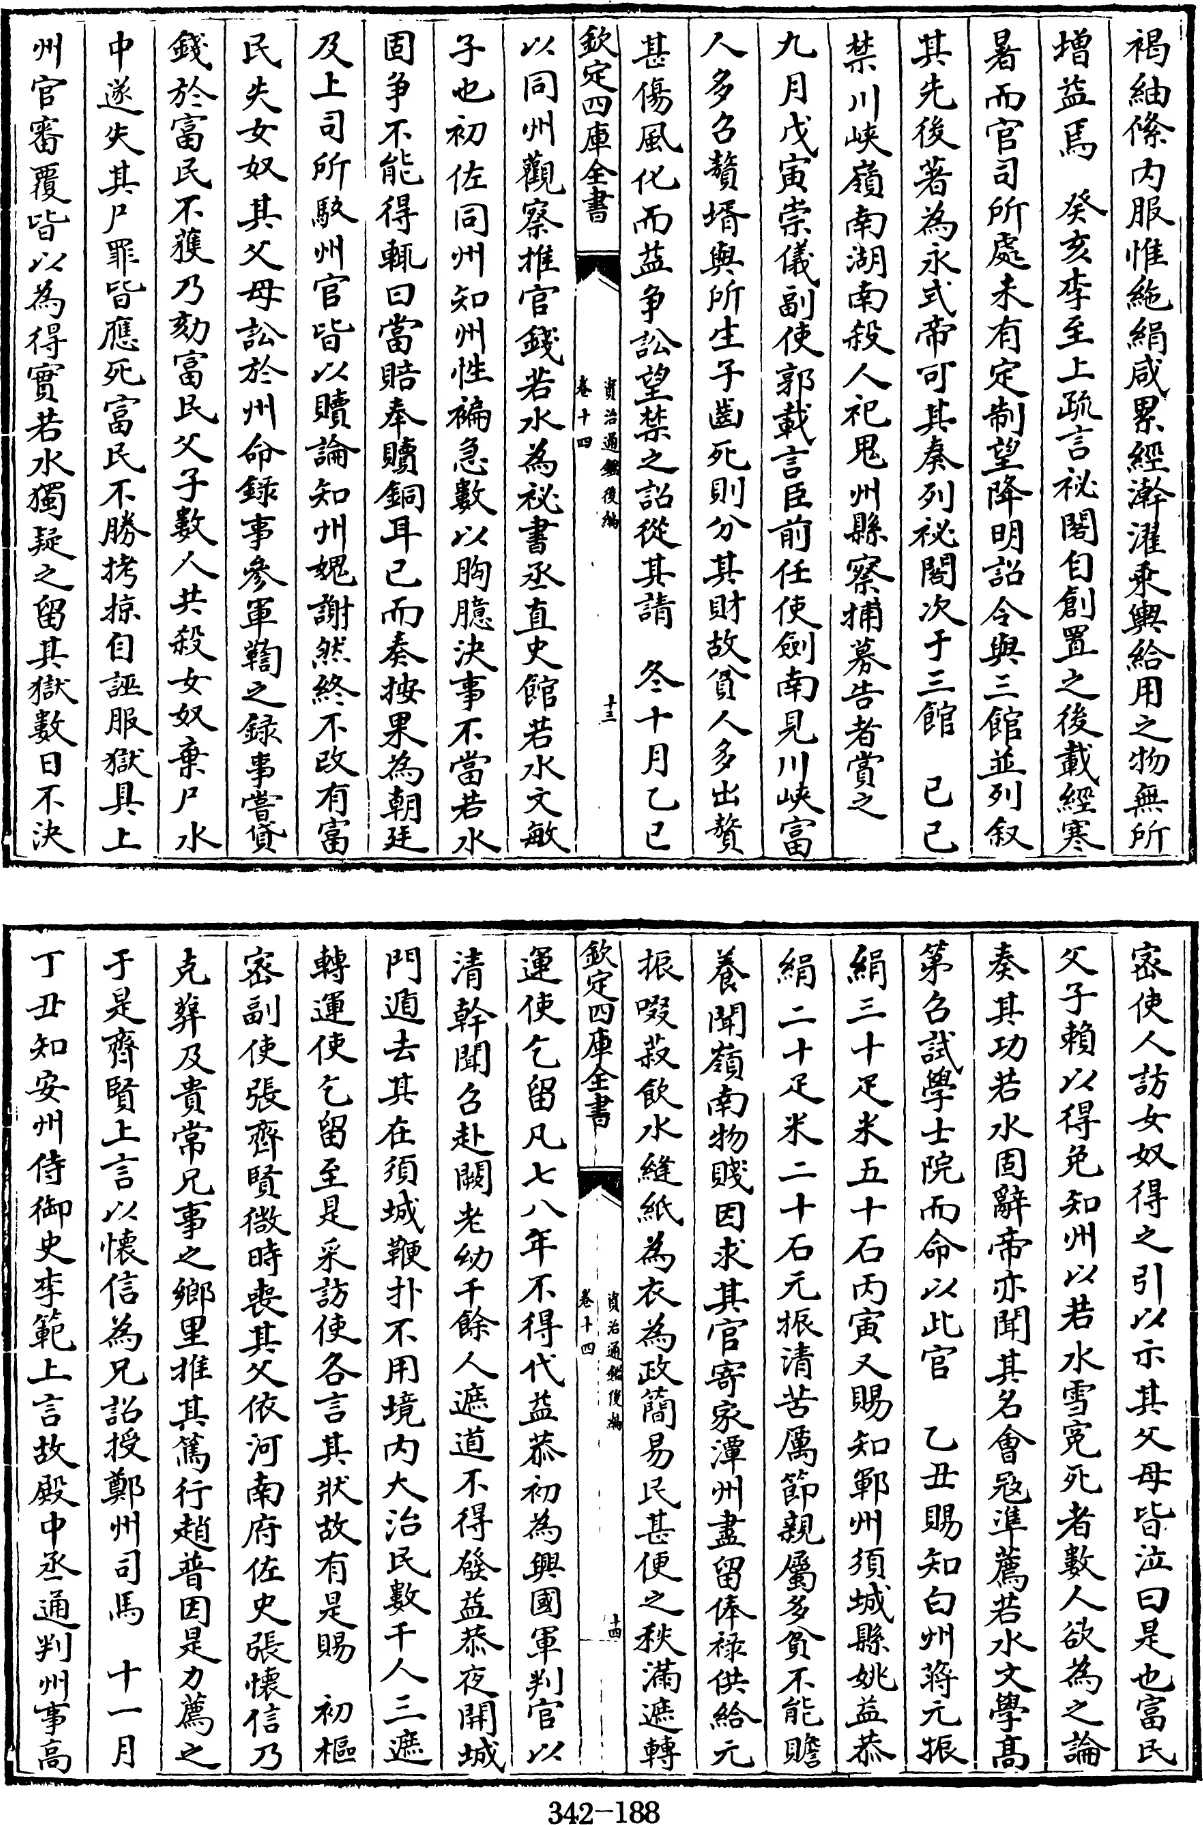 褐紬絛内服惟絁絹咸累經澣濯乘輿給用之物無所
增益焉　癸亥李至上疏言祕閣自創置之後載經寒
暑而官司所處未有定制望降明詔令與三館並列叙
其先後著為永式帝可其奏列祕閣次于三館　己已
禁川峽嶺南湖南殺人祀鬼州縣察捕募告者賞之
九月戊寅崇儀副使郭載言臣前任使劍南見川峽富
人多召贅壻與所生子齒死則分其財故貧人多出贅
甚傷風化而益争訟望禁之詔從其請　冬十月乙已
欽定四庫全書
資治通鑑後編
卷十四
十三
以同州觀察推官錢若水為祕書丞直史館若水文敏
子也初佐同州知州性褊急數以胸臆決事不當若水
固争不能得輒曰當賠奉贖銅耳已而奏按果為朝廷
及上司所駮州官皆以贖論知州媿謝然終不改有富
民失女奴其父母訟於州命録事參軍鞫之録事嘗貸
錢於富民不獲乃劾富民父子數人共殺女奴棄尸水
中遂失其尸罪皆應死富民不勝拷掠自誣服獄具上
州官審覆皆以為得實若水獨疑之留其獄數日不決
宻使人訪女奴得之引以示其父母皆泣曰是也富民
父子賴以得免知州以若水雪寃死者數人欲為之論
奏其功若水固辭帝亦聞其名會宼準薦若水文學高
第召試學士院而命以此官　乙丑賜知白州蔣元振
絹三十疋米五十石丙寅又賜知鄆州須城縣姚益恭
絹二十疋米二十石元振清苦厲節親屬多貧不能贍
養聞嶺南物賤因求其官寄家潭州盡留俸禄供給元
振啜菽飲水縫紙為衣為政簡易民甚便之秩滿遮轉
欽定四庫全書
資治通鑑後編
卷十四
十四
運使乞留凡七八年不得代益恭初為興國軍判官以
清幹聞召赴闕老幼千餘人遮道不得發益恭夜開城
門遁去其在須城鞭扑不用境内大治民數千人三遮
轉運使乞留至是采訪使各言其狀故有是賜　初樞
宻副使張齊賢微時喪其父依河南府佐史張懷信乃
克葬及貴常兄事之鄉里推其篤行趙普因是力薦之
于是齊賢上言以懷信為兄詔授鄭州司馬　十一月
丁丑知安州侍御史李範上言故殿中丞通判州事高
342-188